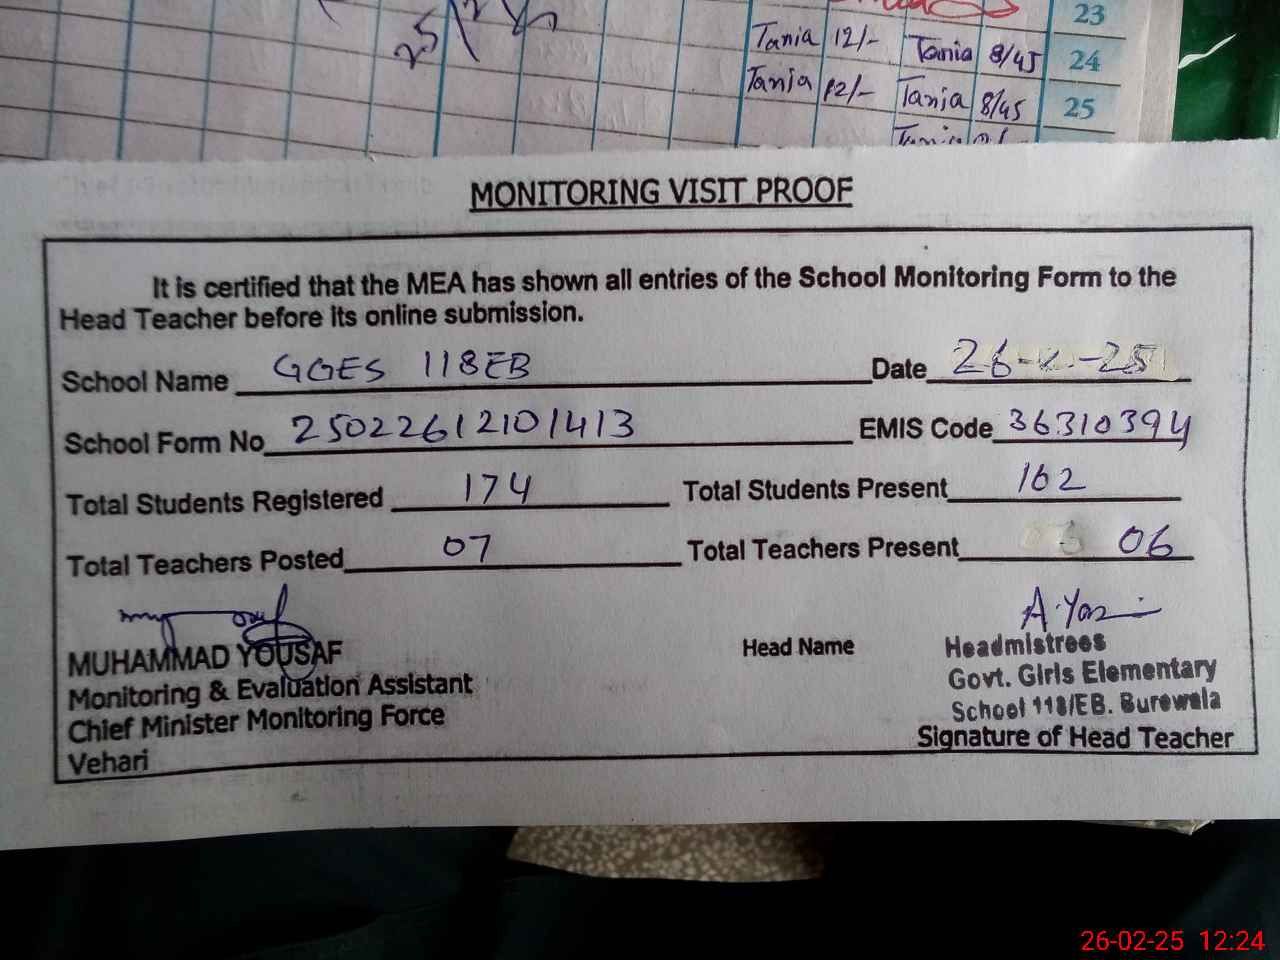 23
Tania 12/- Tania 8/45 24
Tania 12/- Tania 8/45 25
MONITORING VISIT PROOF
It is certified that the MEA has shown all entries of the School Monitoring Form to the
Head Teacher before its online submission.
School Name GGES 118EB Date 26- -25
School Form No 25022612101413 EMIS Code 36310394
Total Students Registered 174 Total Students Present 162
Total Teachers Posted 07 Total Teachers Present 06
A.Yas
MUHAMMAD YOUSAF Head Name Headmistrees
Monitoring & Evaluation Assistant Govt. Girls Elementary
Chief Minister Monitoring Force School 118/EB. Burewala
Vehari Signature of Head Teacher
26-02-25 12:24